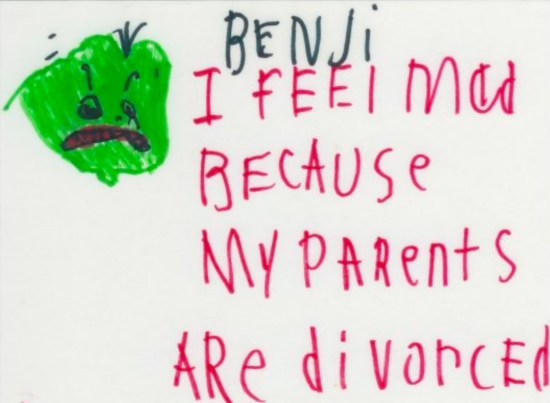 BENJi
I FEEl MAd
BECAUSe
MY PARentS
ARe divorced